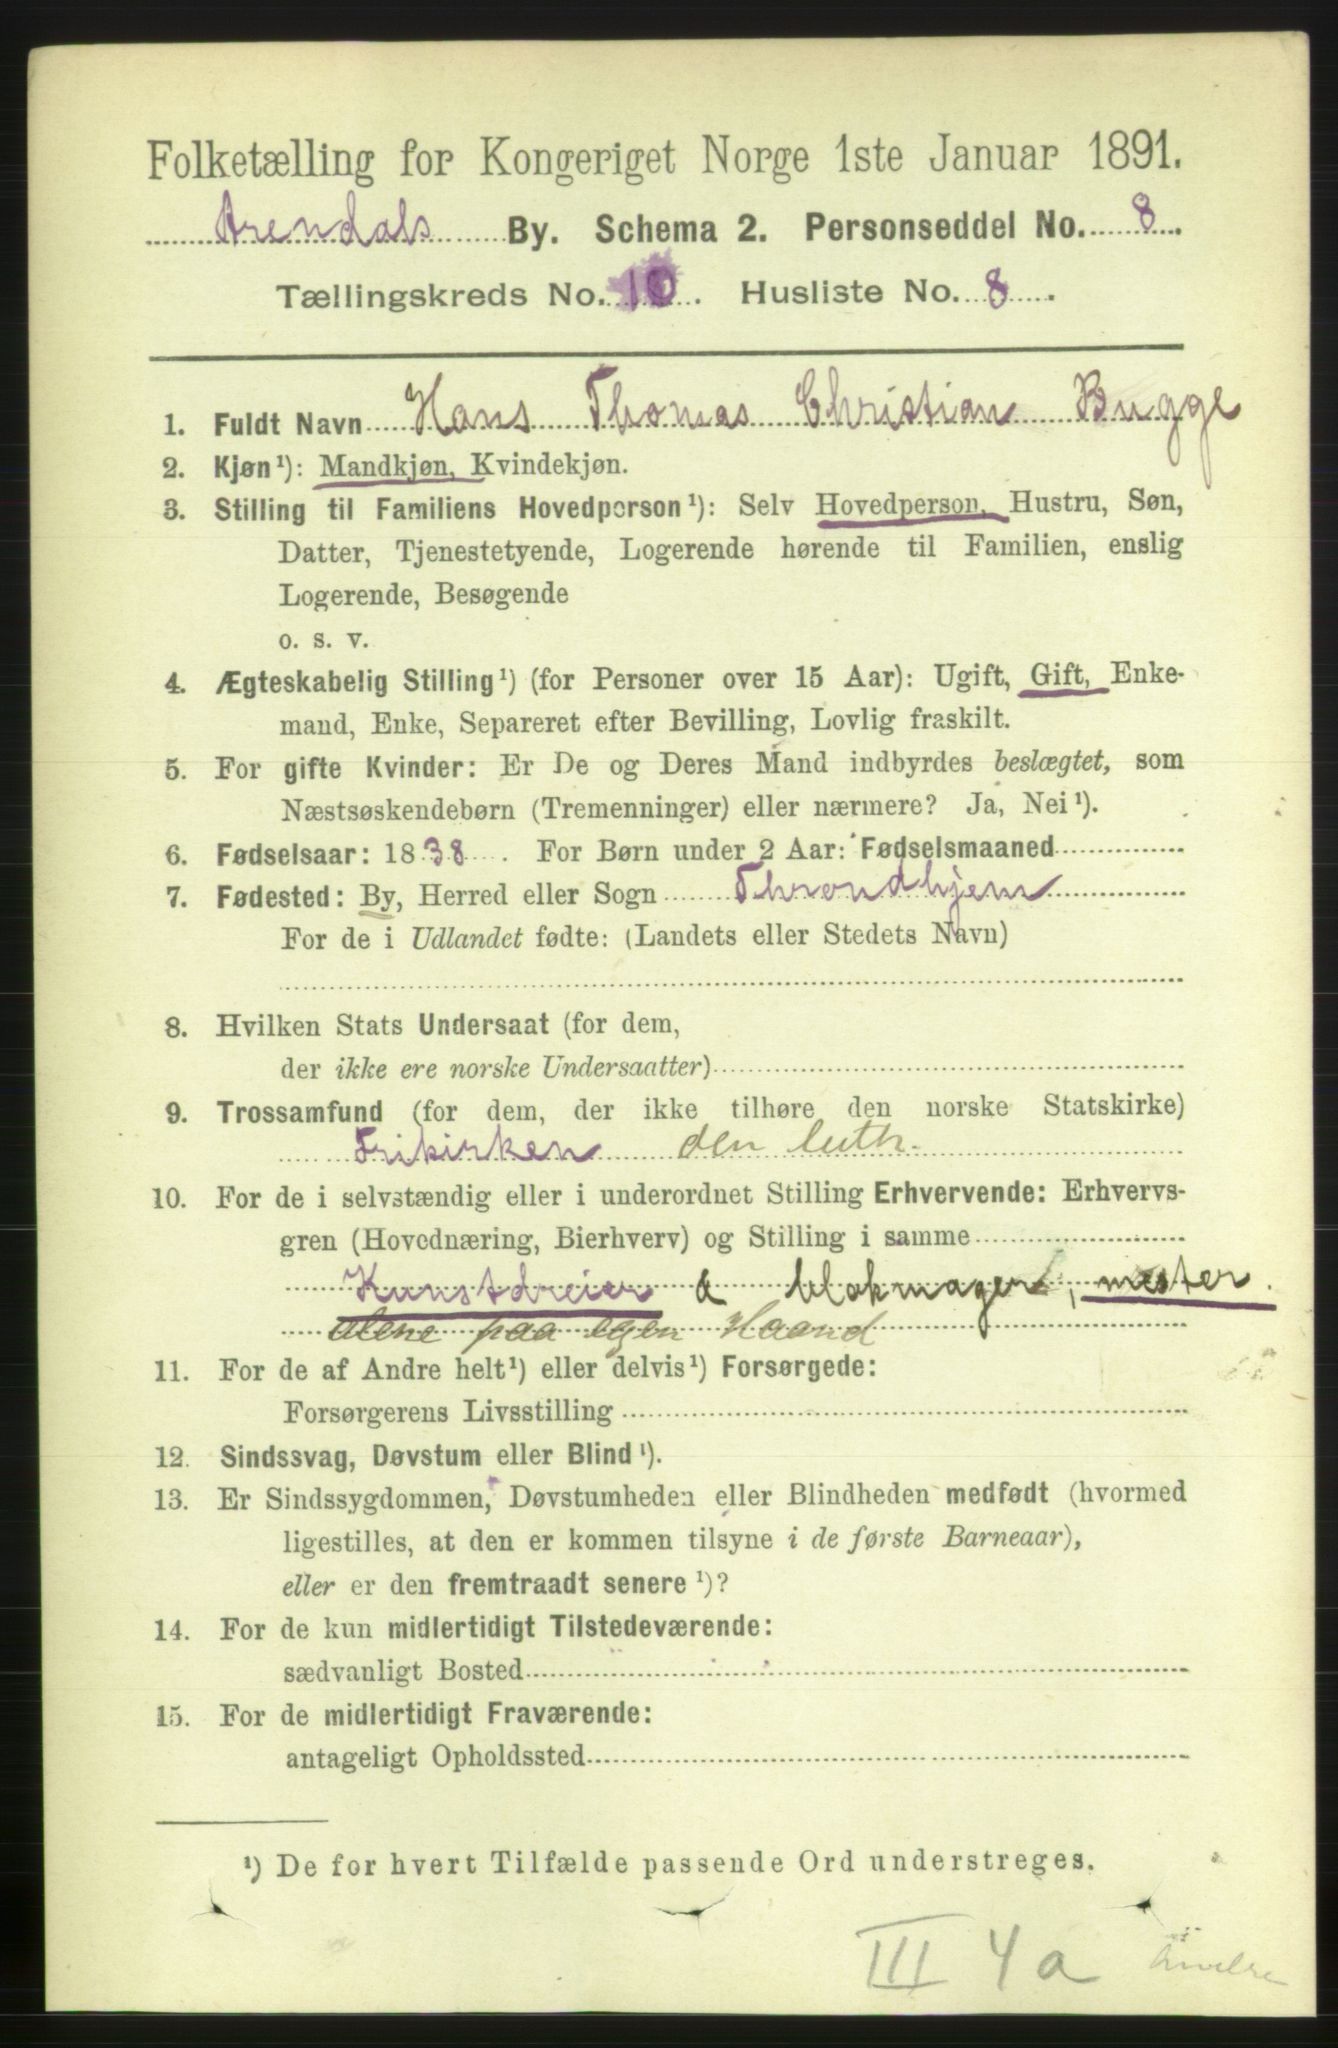 Folketælling for Kongeriget Norge 1ste Januar 1891.
Arendals By. Schema 2. Personseddel No. 8
Tællingskreds No. 10. Husliste No. 8.
1. Fuldt Navn Hans Thomas Christian Bugge
2. Kjøn¹): Mandkjøn, Kvindekjøn.
3. Stilling til Familiens Hovedperson¹): Selv Hovedperson, Hustru, Søn,
Datter, Tjenestetyende, Logerende hørende til Familien, enslig
Logerende, Besøgende
o. s. v.
4. Ægteskabelig Stilling¹) (for Personer over 15 Aar): Ugift, Gift, Enke-
mand, Enke, Separeret efter Bevilling, Lovlig fraskilt.
5. For gifte Kvinder: Er De og Deres Mand indbyrdes beslægtet, som
Næstsøskendebørn (Tremenninger) eller nærmere? Ja, Nei¹).
6. Fødselsaar: 1838. For Børn under 2 Aar: Fødselsmaaned
7. Fødested: By, Herred eller Sogn Throndhjem
For de i Udlandet fødte: (Landets eller Stedets Navn)
8. Hvilken Stats Undersaat (for dem,
der ikke ere norske Undersaatter)
9. Trossamfund (for dem, der ikke tilhøre den norske Statskirke)
Frikirken den luth.
10. For de i selvstændig eller i underordnet Stilling Erhvervende: Erhvervs-
gren (Hovednæring, Bierhverv) og Stilling i samme
Kunstdreier & blokmager, mester.
alene paa egen Haand
11. For de af Andre helt¹) eller delvis¹) Forsørgede:
Forsørgerens Livsstilling
12. Sindssvag, Døvstum eller Blind¹).
13. Er Sindssygdommen, Døvstumheden eller Blindheden medfødt (hvormed
ligestilles, at den er kommen tilsyne i de første Barneaar),
eller er den fremtraadt senere¹)?
14. For de kun midlertidigt Tilstedeværende:
sædvanligt Bosted
15. For de midlertidigt Fraværende:
antageligt Opholdssted
¹) De for hvert Tilfælde passende Ord understreges.
III 4a